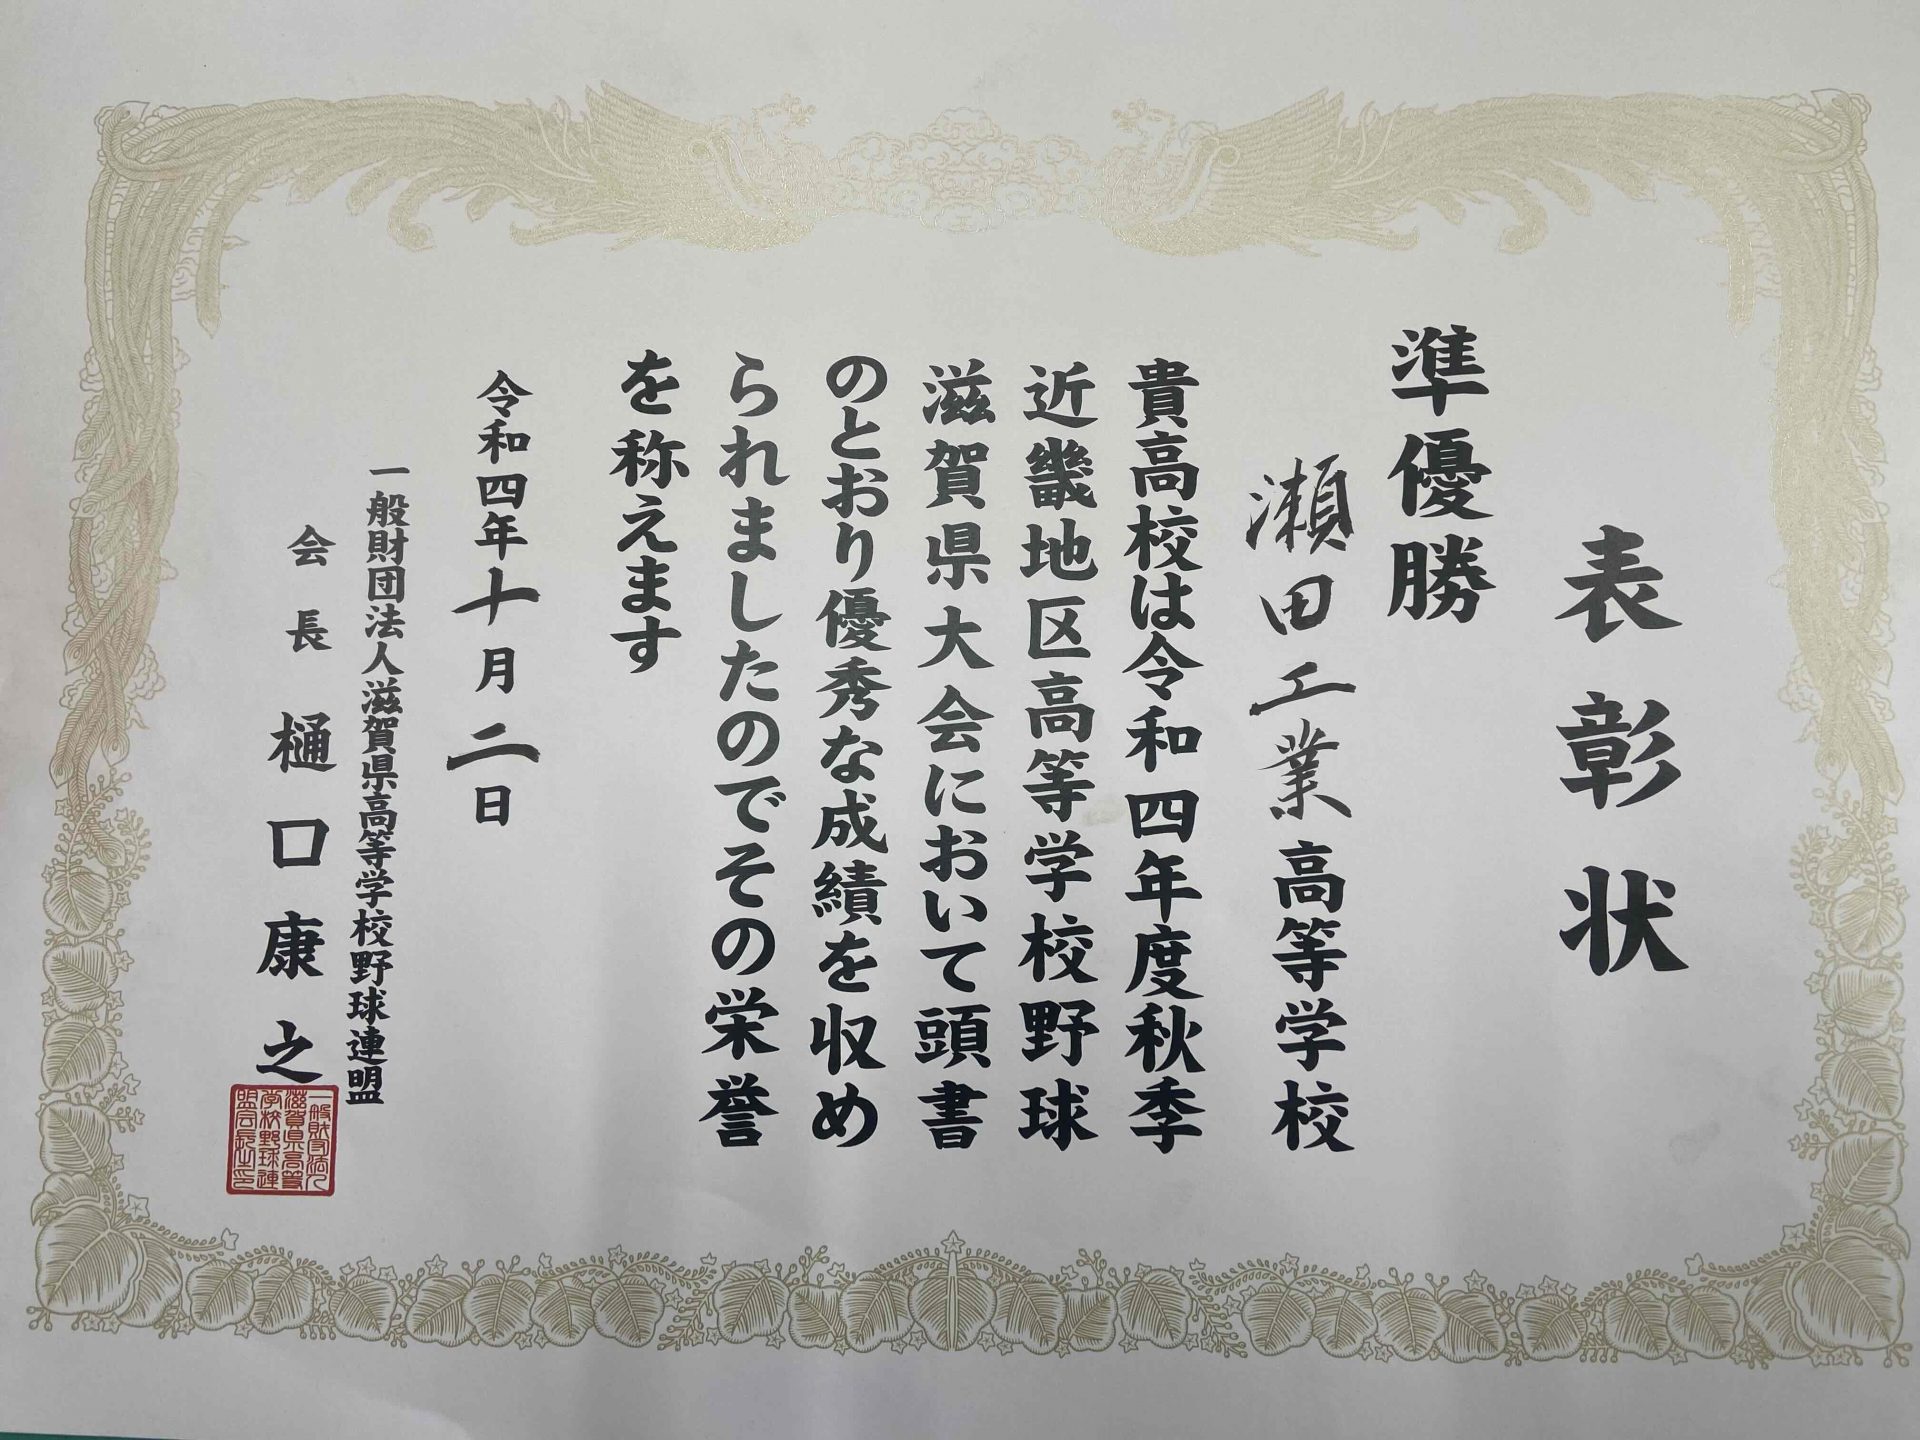 表彰状
準優勝
瀬田工業高等学校
貴高校は令和四年度秋季
近畿地区高等学校野球
滋賀県大会において頭書
のとおり優秀な成績を収め
られましたのでその栄誉
を称えます
令和四年十月二日
一般財団法人滋賀県高等学校野球連盟
会長 樋口康之
一般財団法人
滋賀県高等
学校野球連
盟会長之印